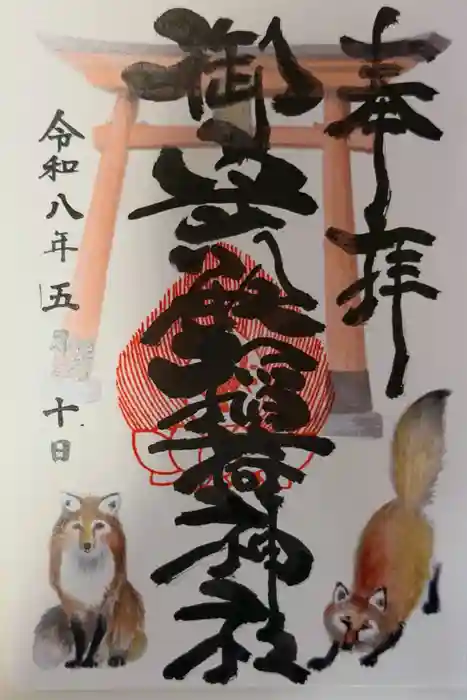 奉拝
御宝殿稲荷神社
令和八年五月十日